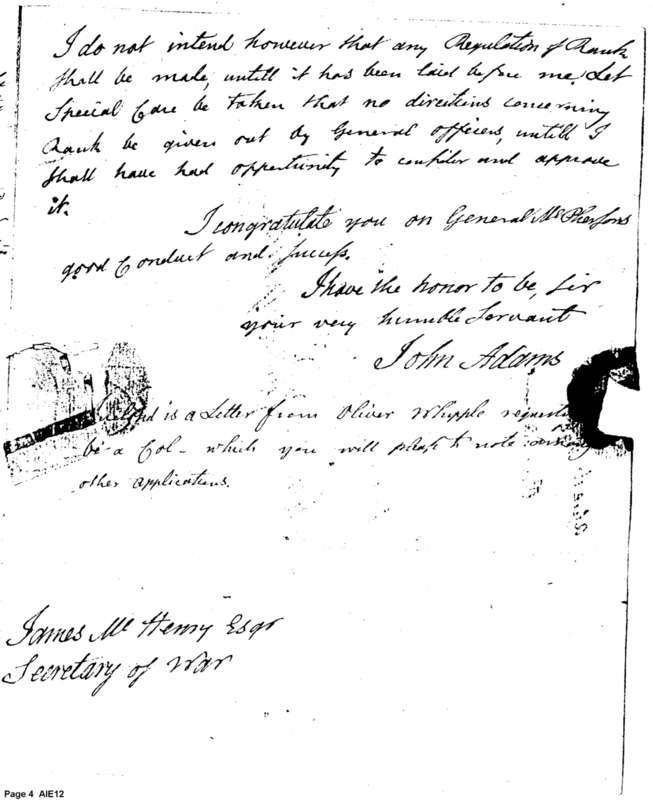 I do not intend however that any Regulation of Rank
shall be made, untill it has been laid before me. Let
Special Care be taken that no directions concerning
Rank be given out by General officers, untill I
shall have had opportunity to consider and approve
it.
I congratulate you on General McPhersons
good Conduct and success.
I have the honor to be, Sir
your very humble Servant
John Adams
is a Letter from Oliver Whipple
be a Col - which you will please to note among
other applications.
James Mc Henry Esqr
Secretary of War
Page 4 AIE12